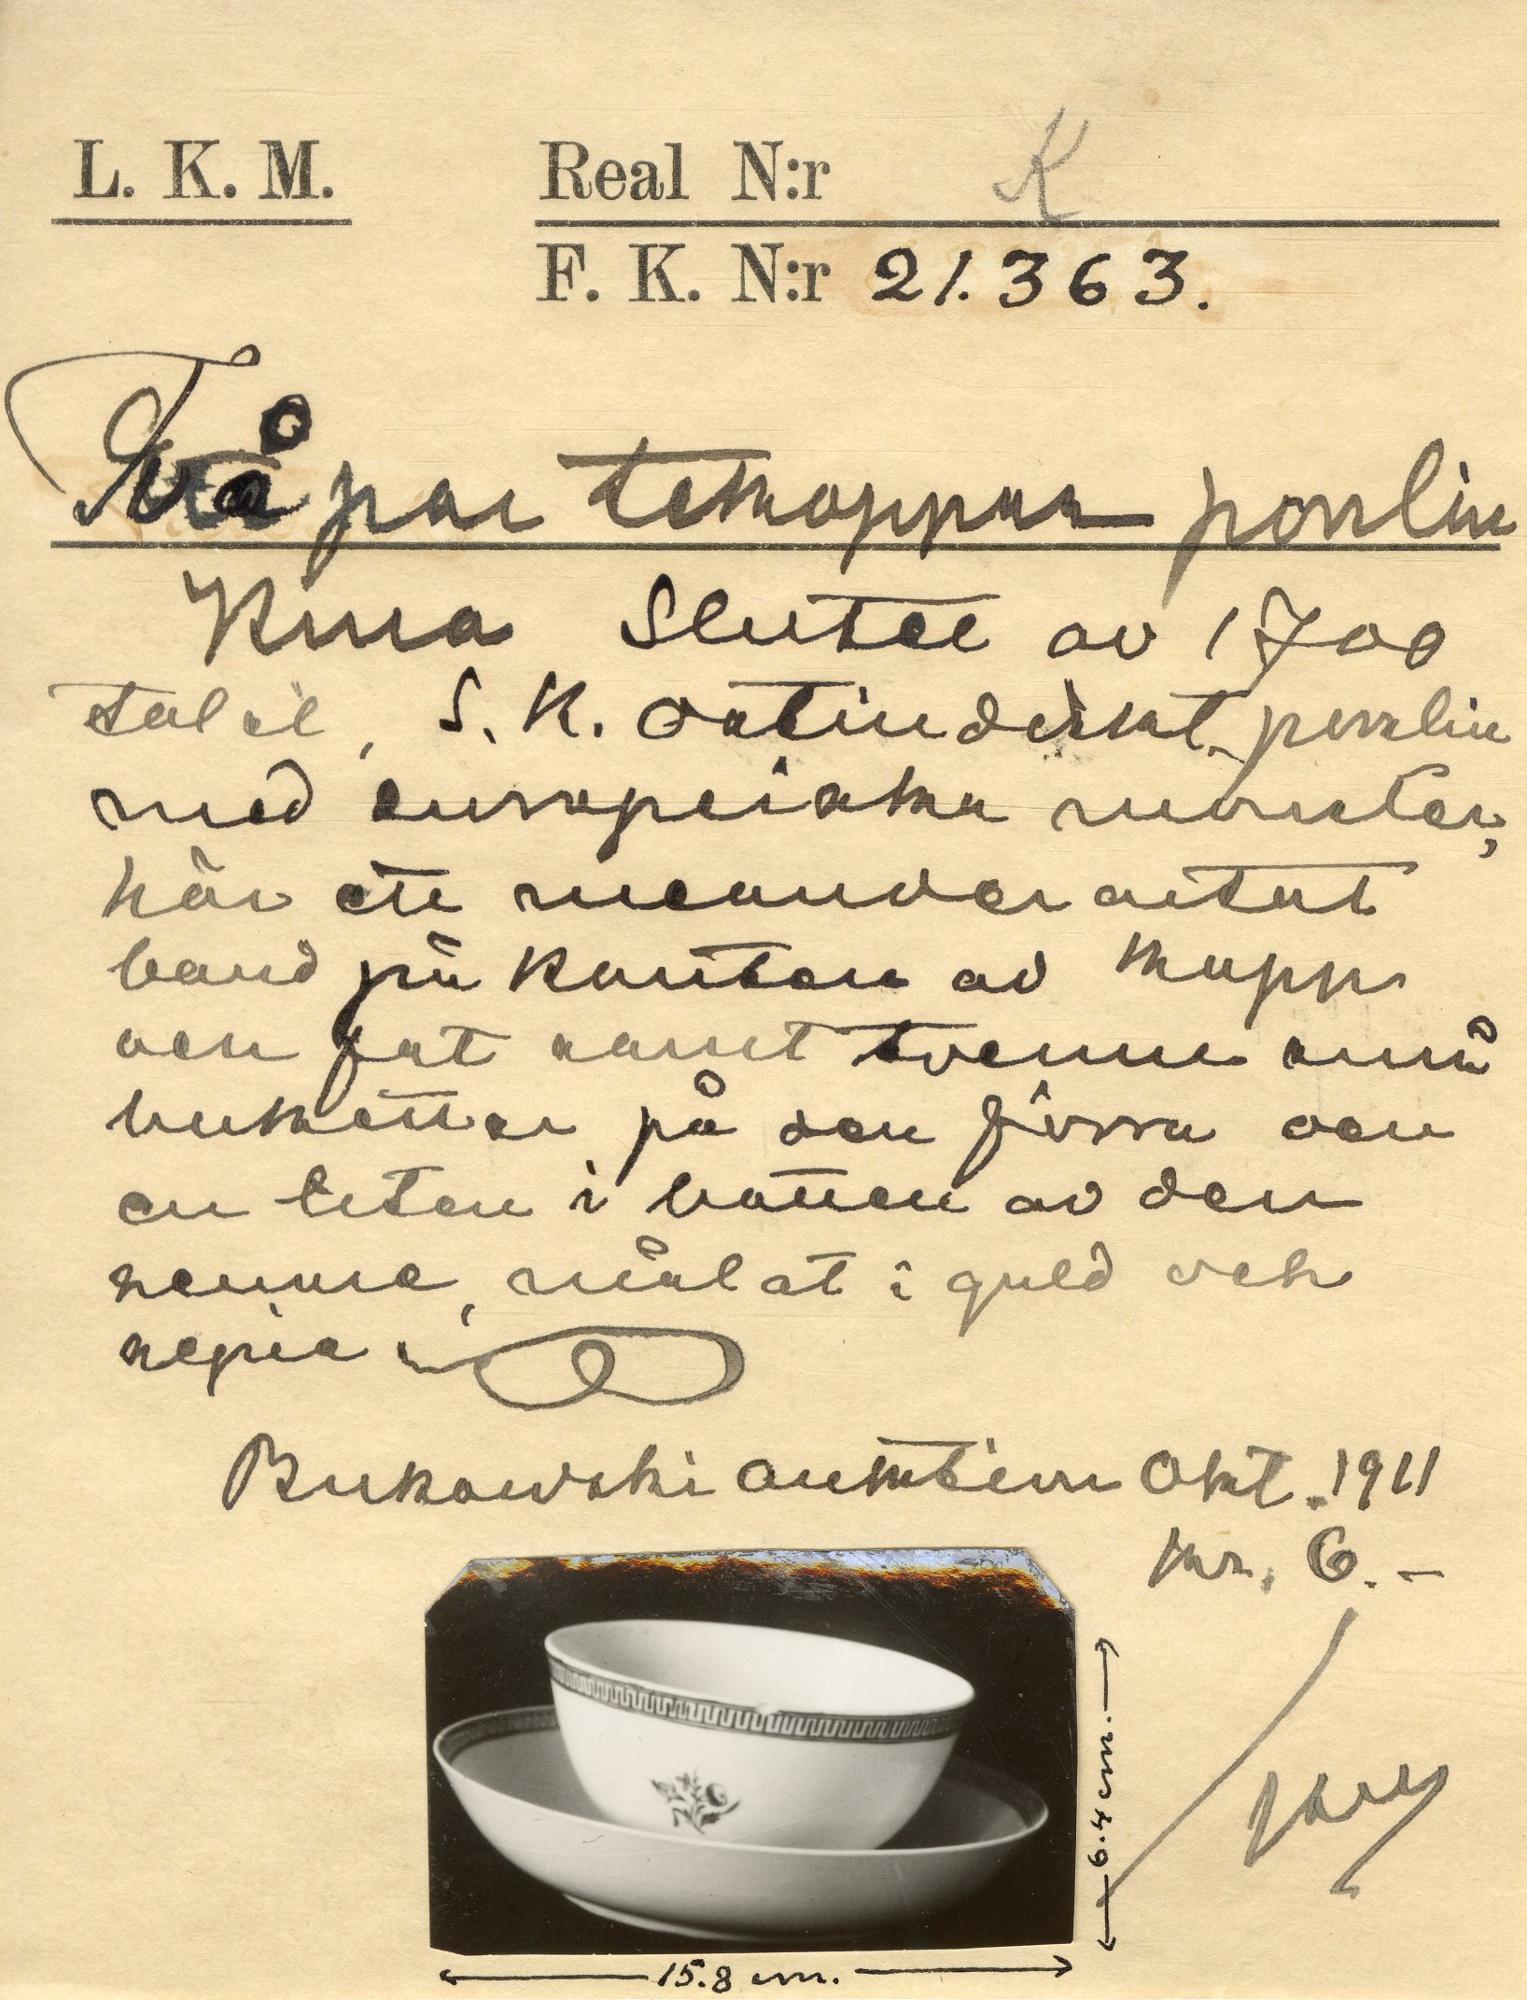 L. K. M. Real N:r K
F. K. N:r 21.363.
Två par tekoppar porslin
Kina Slutet av 1700
talet, S.K. ostindiskt porslin
med europeiska mönster,
här ett meanderartat
band på kanten av kopp
och fat samt tvenne små
buketter på den förra och
en liten i botten av den
senare, målat i guld och
sepia
Bukowski auktion Okt. 1911
kr. 6.-
6.4 cm.
15.8 cm.